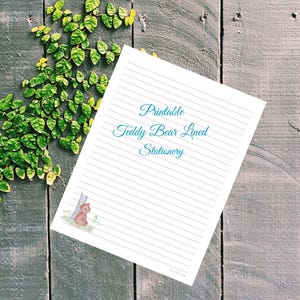 Printable
Teddy Bear Lined
Stationery